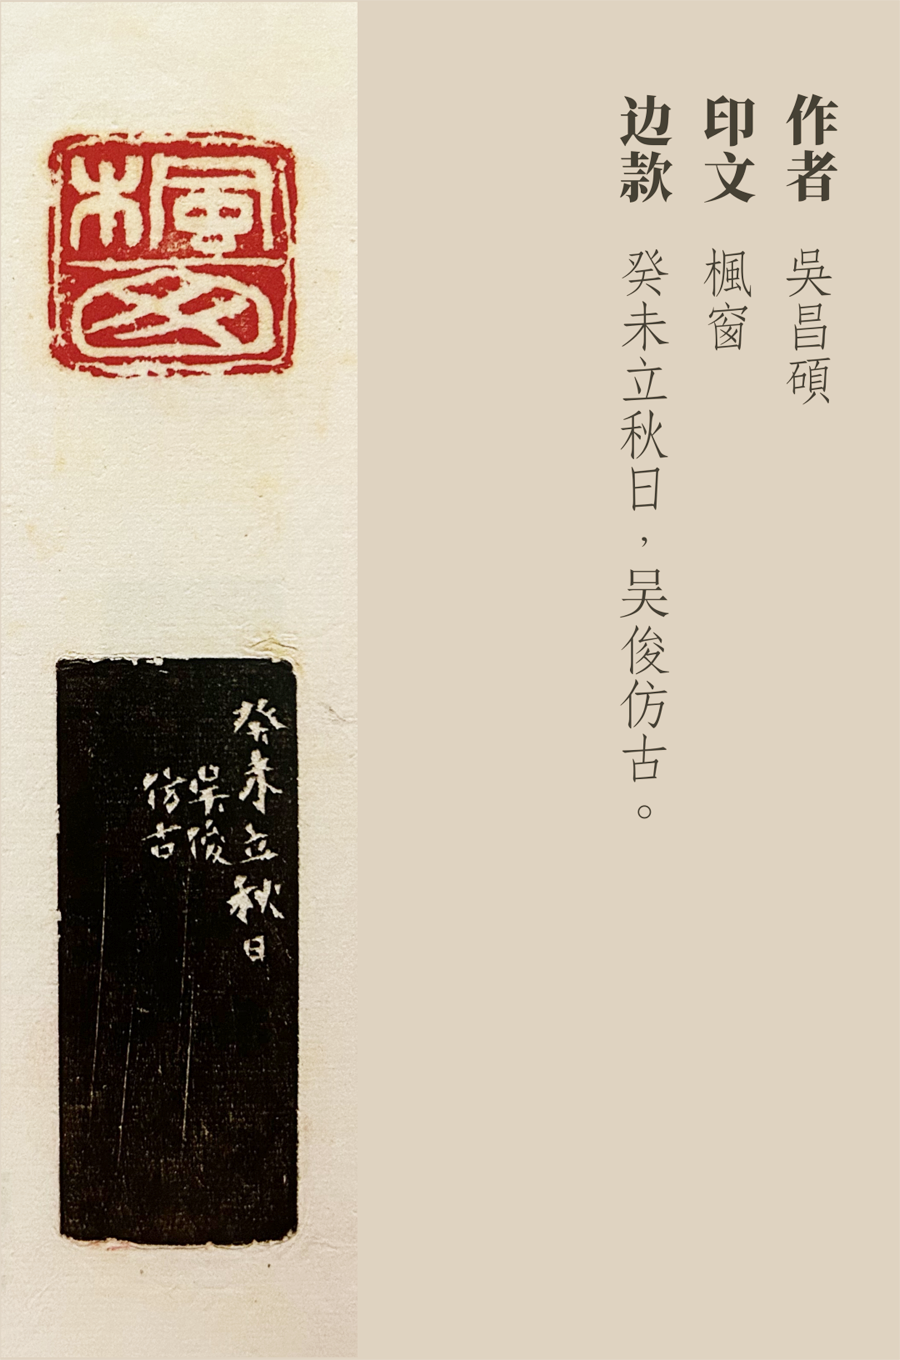 作者 吳昌碩
印文 楓窗
边款 癸未立秋日，吴俊仿古。
楓窗
癸未立秋日
吴俊
仿古